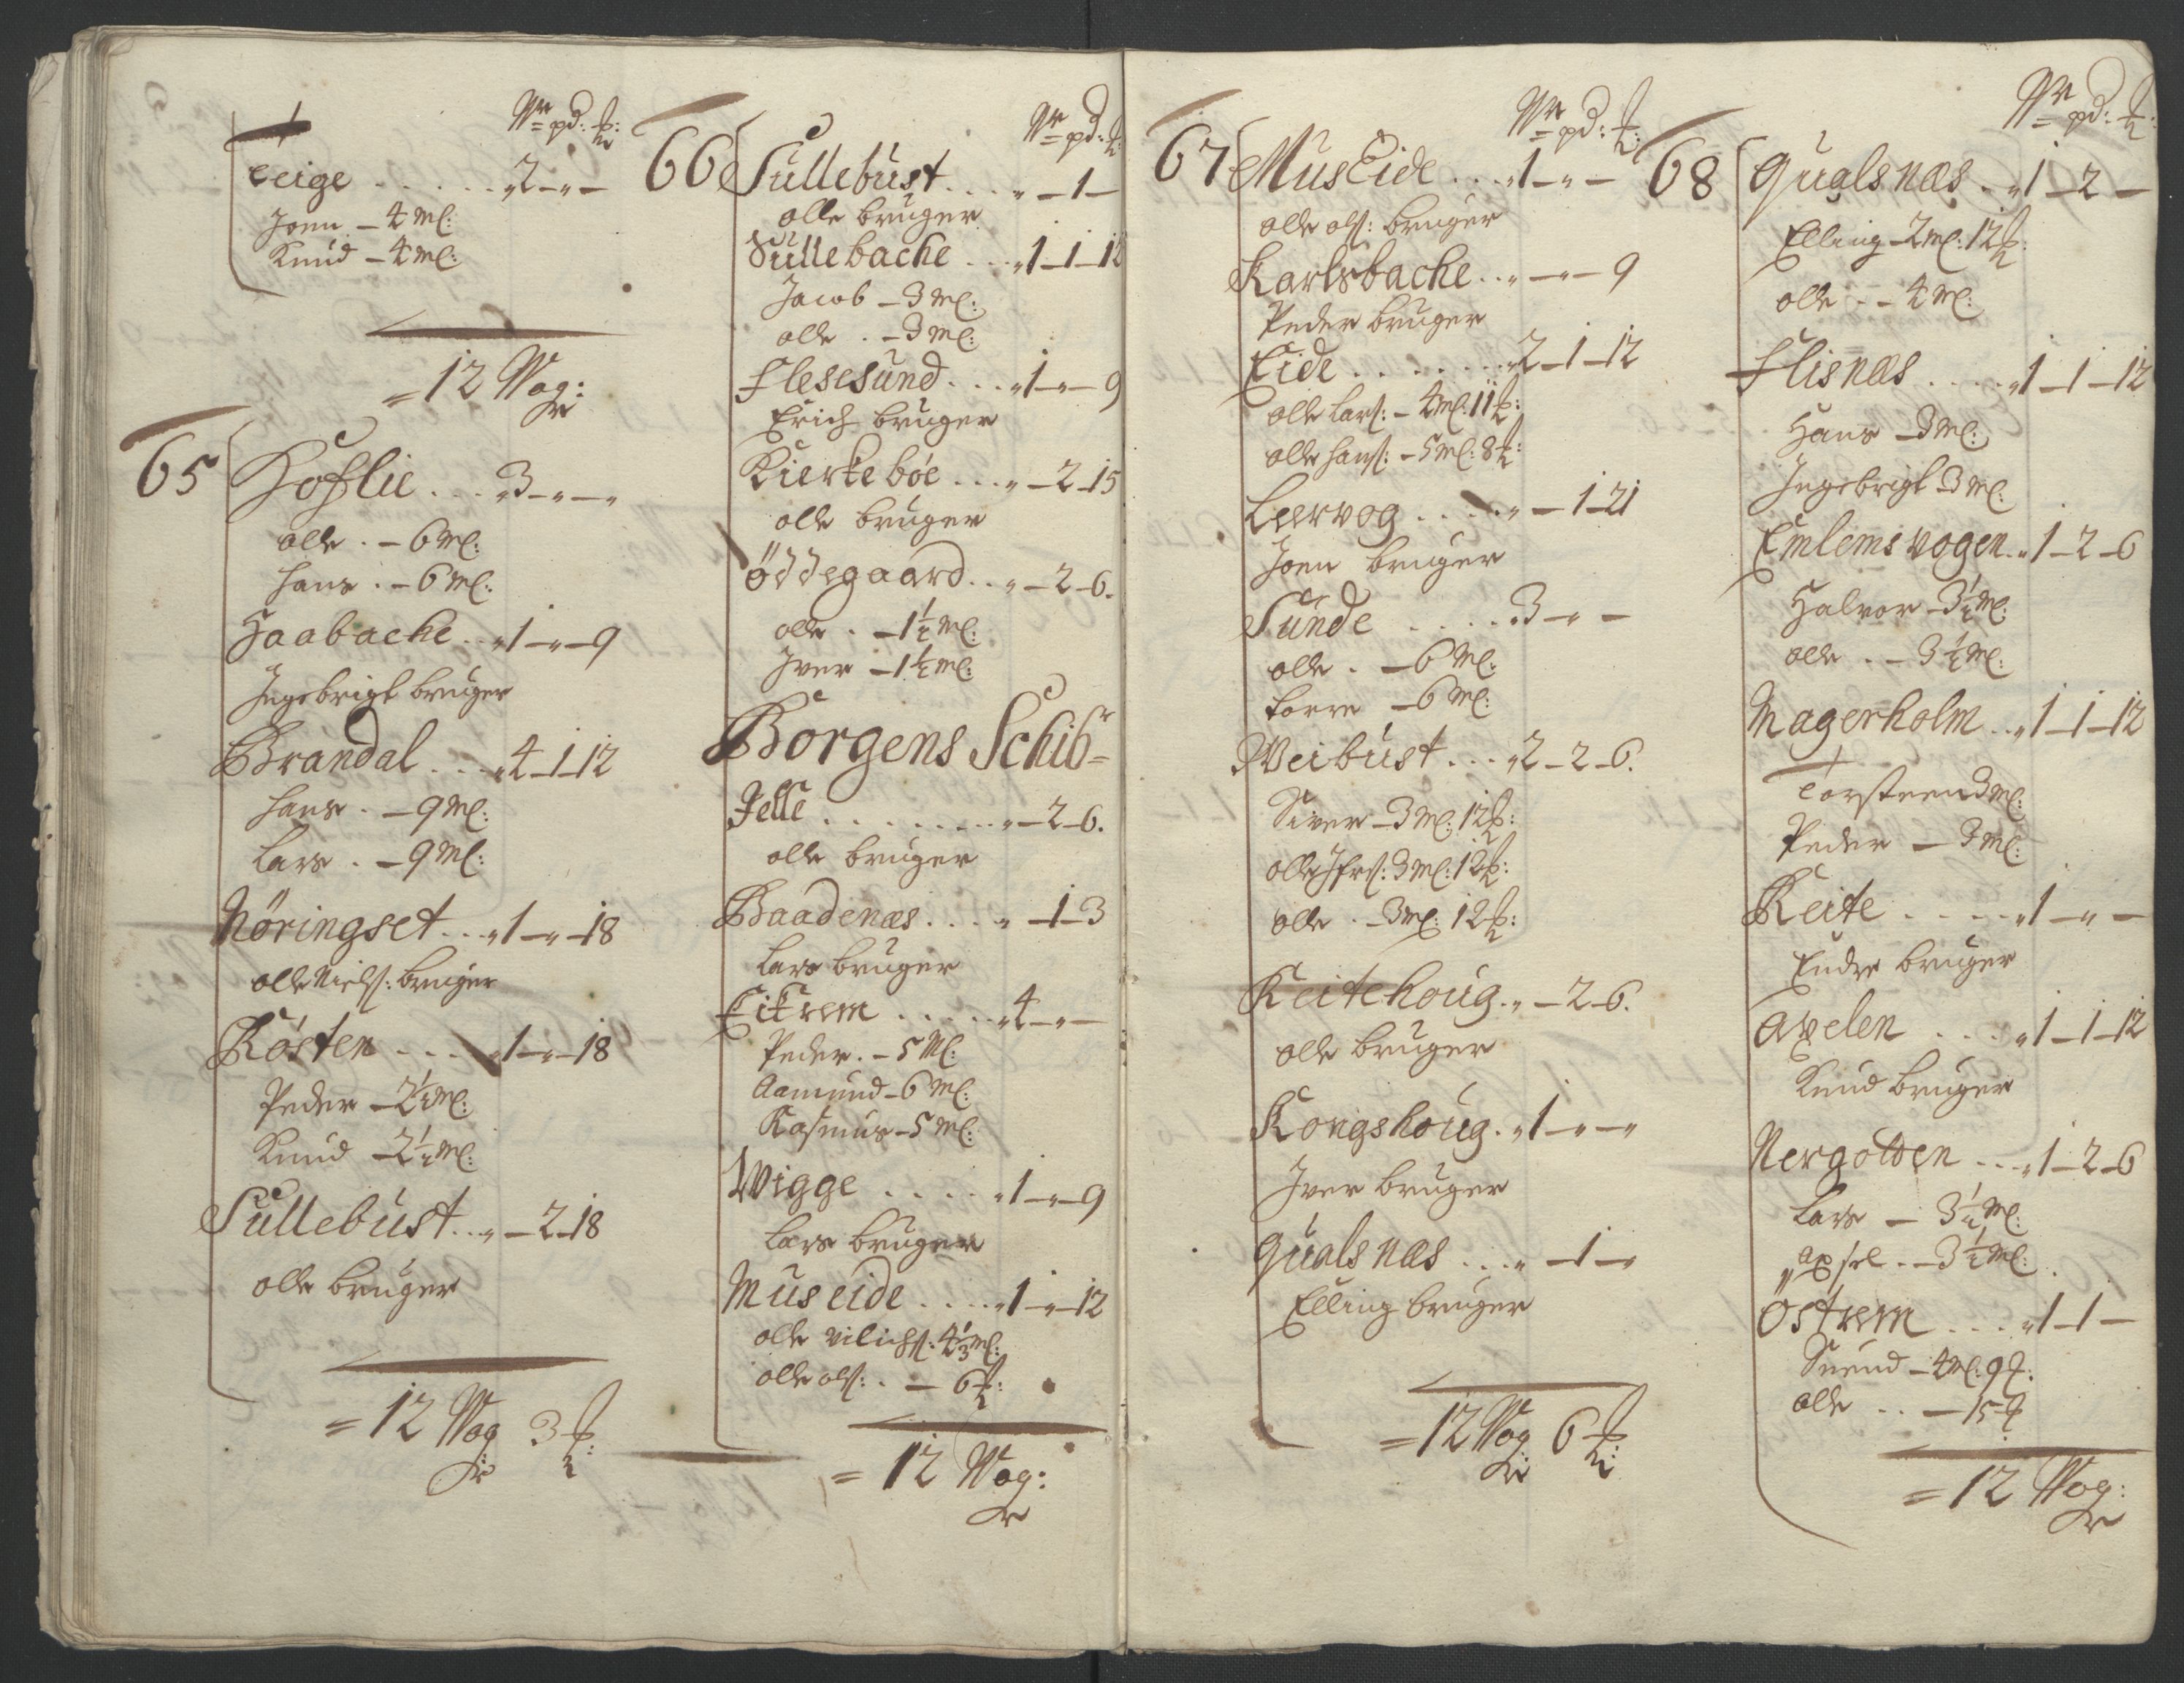 W pd: ℔:
Teige . . . . . „ 2 – „ –
Joen – 4 Ml:
Knud – 4 Ml:
= 12 Wog:
65 Hoflie . . . „ 3 – „ – „
olle . – 6 Ml:
Hans . – 6 Ml:
Haabache . . „ 1 – „ – 9
Ingebrigt bruger
Brandal . . . „ 4 – 1 – 12
Hans . – 9 Ml:
Lars . – 9 Ml:
Nöringset . . „ 1 – „ – 18
olle Nielß: bruger
Rösten . . . „ 1 – „ – 18
Peder – 2½ Ml:
Knud – 2½ Ml:
Sullebust . . „ – 2 – 18
olle bruger
= 12 Wog 3 ℔:
W pd: ℔:
66 Sullebust . . . „ – 1 –
olle bruger
Sullebache . . . „ 1 – 1 – 12
Jacob – 3 Ml:
olle . – 3 Ml:
Flesesund . . . „ 1 – „ – 9
Erich bruger
Kierkebøe . . . „ – 2 – 15
olle bruger
Öddegaard . . „ – 2 – 6.
olle . – 1½ Ml:
Iver – 1½ Ml:
Borgens Schibr=
Jelle . . . . . . . „ – 2 – 6.
olle bruger
Baadenæs . . . . „ – 1 – 3
Lars bruger
Eikrem . . . . . „ 4 – „ –
Peder . – 5 Ml:
Aamund – 6 Ml:
Rasmus – 5 Ml:
Wigge . . . . . „ 1 – „ – 9
Lars bruger
Museide . . . . „ 1 – „ – 12
olle olß: . – 6 ℔:
= 12 Wog:
W pd: ℔:
67 MusEide . . . „ 1 – „ –
olle olß: bruger
Karlsbache . . „ – „ – 9
Peder bruger
Eide . . . . . . . „ 2 – 1 – 12
olle Larß: – 4 Ml: 11 ℔:
olle Hanß: – 5 Ml: 8 ℔:
Leervog . . . . „ – 1 – 21
Joen bruger
Sunde . . . . . 3 – „ –
olle . – 6 Ml:
Torre – 6 Ml:
Weibust . . . „ 2 – 2 – 6.
Siver – 3 Ml: 12 ℔:
olle Ifrß: 3 Ml: 12 ℔:
olle . – 3 Ml: 12 ℔:
Keitehoug . „ – 2 – 6.
olle bruger
Kongshoug . „ 1 – „ – „
Iver bruger
Gualsnæs . . . „ – 1 – „
Elling bruger
= 12 Wog 6 ℔:
W pd: ℔:
68 Gualsnæs . . „ 1 – 2 –
Elling – 2 Ml: 12 ℔:
olle . – 4 Ml:
Flisnæs . . . . . „ 1 – 1 – 12
Hans – 3 Ml:
Ingebrigt – 3 Ml:
Emlemsvogen . „ 1 – 2 – 6
Halvor – 3½ Ml:
olle . – 3½ Ml:
Magerholm . . „ 1 – 1 – 12
Torsteen 3 Ml:
Peder – 3 Ml:
Reite . . . . . „ 1 – „ –
Endre bruger
Avelen . . . . „ 1 – 1 – 12
Knud bruger
Nergotten . . . „ 1 – 2 – 6
Lars – 3½ Ml:
Apsel . – 3½ Ml:
Östrem . . . . „ 1 – 1 –
Svend – 4 Ml: 9 ℔:
olle . . – 15 ℔
= 12 Wog: